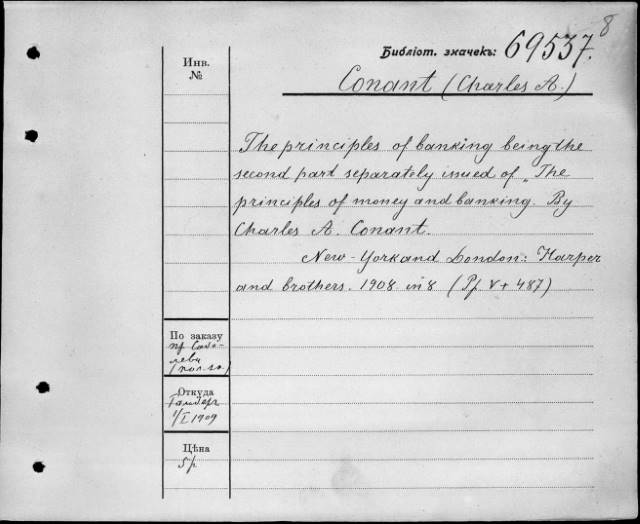 8
Библіот. значекъ: 69537.
Инв.
№
Conant (Charles A.)
The principles of banking being the
second part separately issued of „The
principles of money and banking. By
Charles A. Conant.
New-York and London: Harper
and brothers. 1908. in 8 (Pp. V + 487)
По заказу
пр. Собо-
лева
Откуда
1/I 1909
Цѣна
5 р.